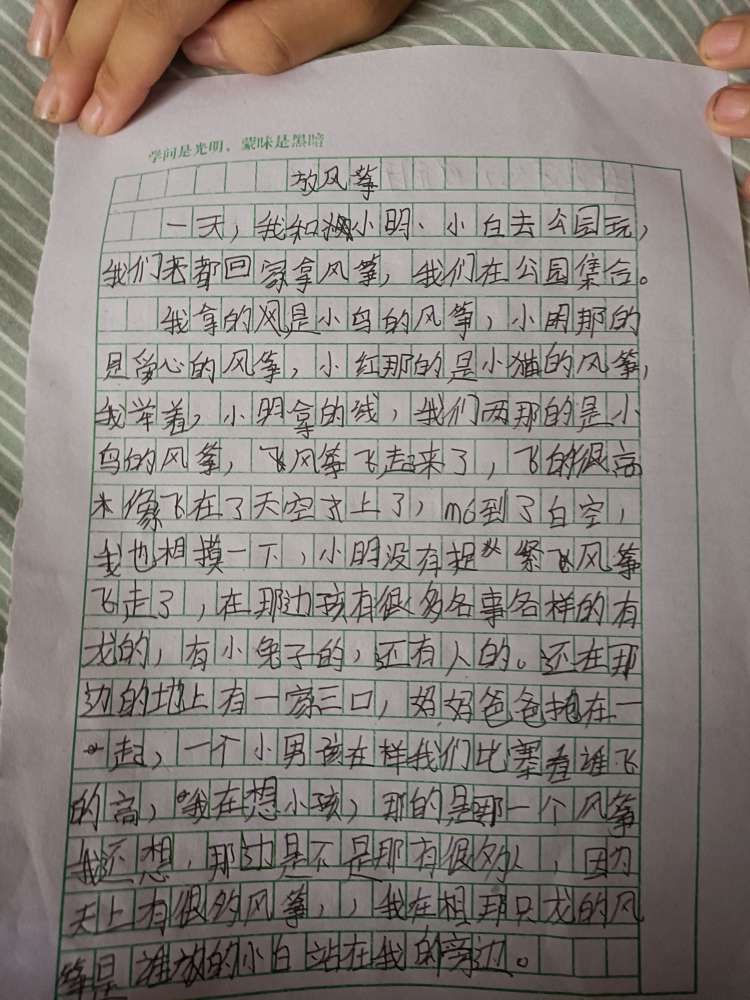 学问是光明，蒙昧是黑暗
放风筝
一天，我和小明、小白去公园玩，
我们都回家拿风筝，我们在公园集合。
我拿的风是小鸟的风筝，小明那的
是爱心的风筝，小红那的是小猫的风筝，
我举着，小明拿的线，我们两那的是小
鸟的风筝，飞风筝飞起来了，飞的很高
像飞在了天空上了，到了白空，
我也相摸一下，小明没有捉紧飞风筝
飞走了，在那边孩有很多各事各样的有
龙的，有小兔子的，还有人的。还在那
边的地上有一家三口，妈妈爸爸抱在一
起，一个小男孩在样我们比赛看谁飞
的高，我在想小孩，那的是那一个风筝
我还想，那边是不是那有很多人，因为
天上有很多风筝，，我在相那只龙的风
筝是谁放的小白站在我的旁边。